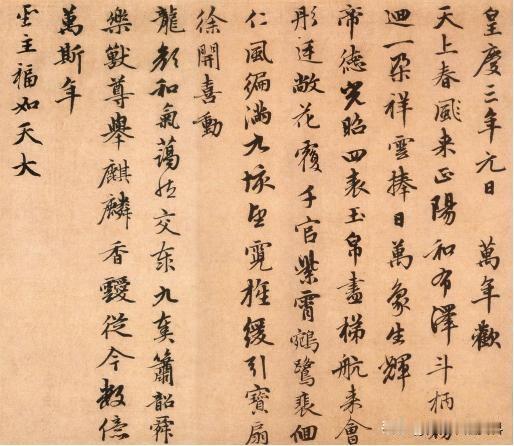 皇慶三年元日　萬年歡
天上春風来正陽和布澤斗柄初
迴一朶祥雲捧日萬象生輝
帝德光昭四表玉帛盡梯航来會
彤庭敞花覆千官紫霄鵷鷺裴佪
仁風徧滿九垓望霓旌緩引寶扇
徐開喜動
龍顔和氣藹然交泰九奏簫韶舜
樂獸尊舉麒麟香靉從今數億
萬斯年
聖主福如天大